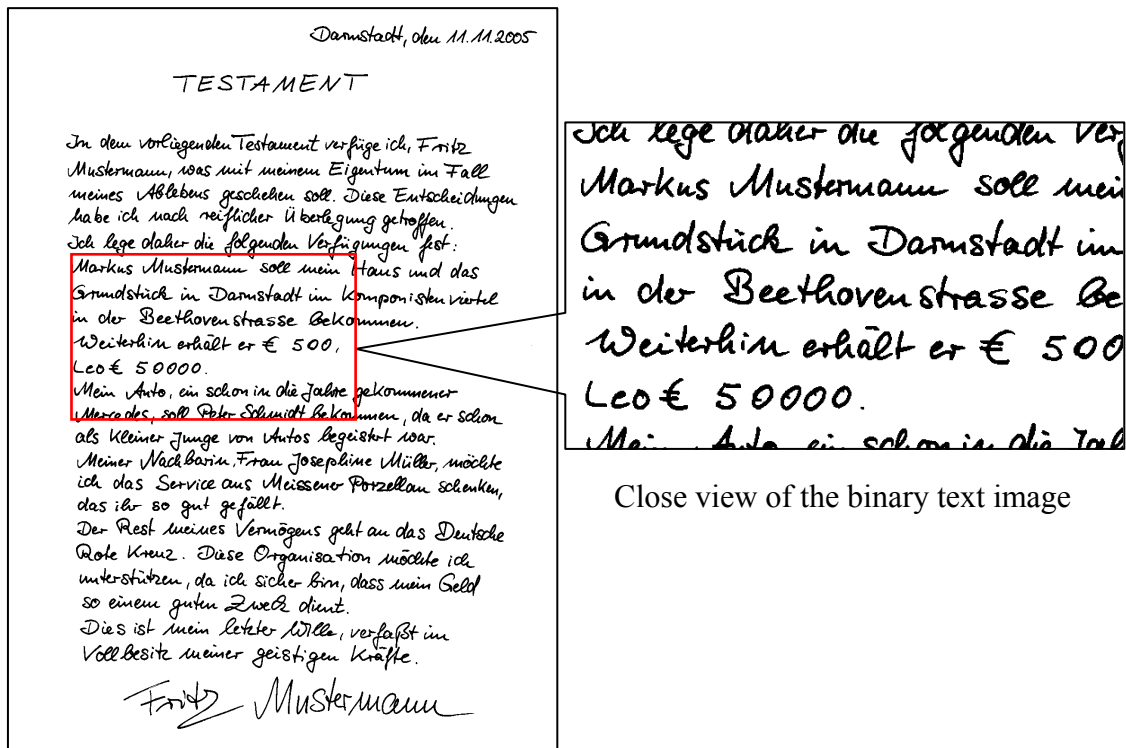 Darmstadt, den 11.11.2005
TESTAMENT
In dem vorliegenden Testament verfüge ich, Fritz
Mustermann, was mit meinem Eigentum im Fall
meines Ablebens geschehen soll. Diese Entscheidungen
habe ich nach reiflicher Überlegung getroffen.
Ich lege daher die folgenden Verfügungen fest:
Markus Mustermann soll mein Haus und das
Grundstück in Darmstadt im Komponistenviertel
in der Beethovenstrasse bekommen.
Weiterhin erhält er € 500,
Leo € 50000.
Mein Auto, ein schon in die Jahre gekommener
Mercedes, soll Peter Schmidt bekommen, da er schon
als kleiner Junge von Autos begeistert war.
Meiner Nachbarin, Frau Josephine Müller, möchte
ich das Service aus Meissener Porzellan schenken,
das ihr so gut gefällt.
Der Rest meines Vermögens geht an das Deutsche
Rote Kreuz. Diese Organisation möchte ich
unterstützen, da ich sicher bin, dass mein Geld
so einem guten Zweck dient.
Dies ist mein letzter Wille, verfaßt im
Vollbesitz meiner geistigen Kräfte.
Fritz Mustermann
Ich lege daher die folgenden Verf
Markus Mustermann soll mein
Grundstück in Darmstadt im
in der Beethovenstrasse be
Weiterhin erhält er € 500
Leo € 50000.
Mein Auto, ein schon in die Jah
Close view of the binary text image